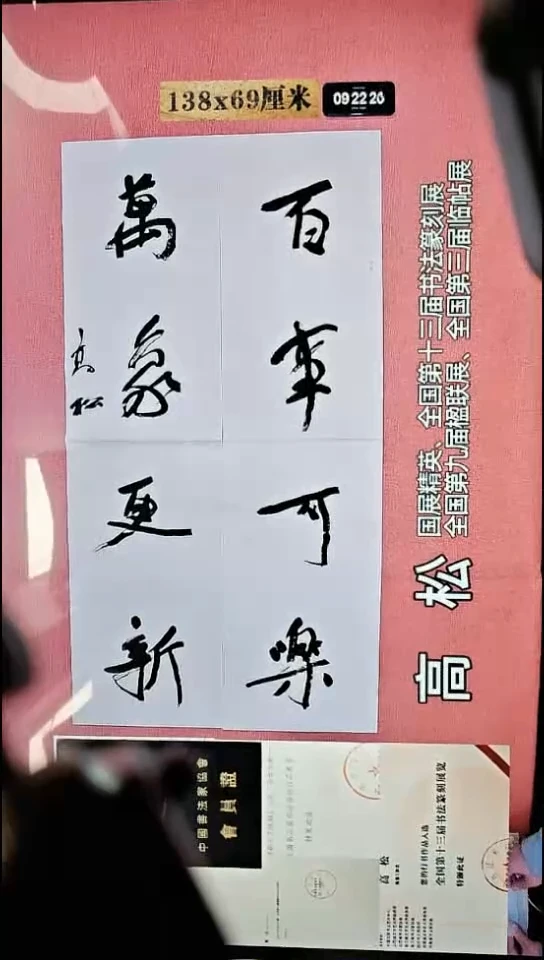 138x69厘米
09:22:26
百事可樂
萬象更新
高松
高松
国展精英、全国第十三届书法篆刻展
全国第九届楹联展、全国第三届临帖展
中國書法家協會
會員證
高松
您的行书作品入选
全国第十三届书法篆刻展览
特颁此证